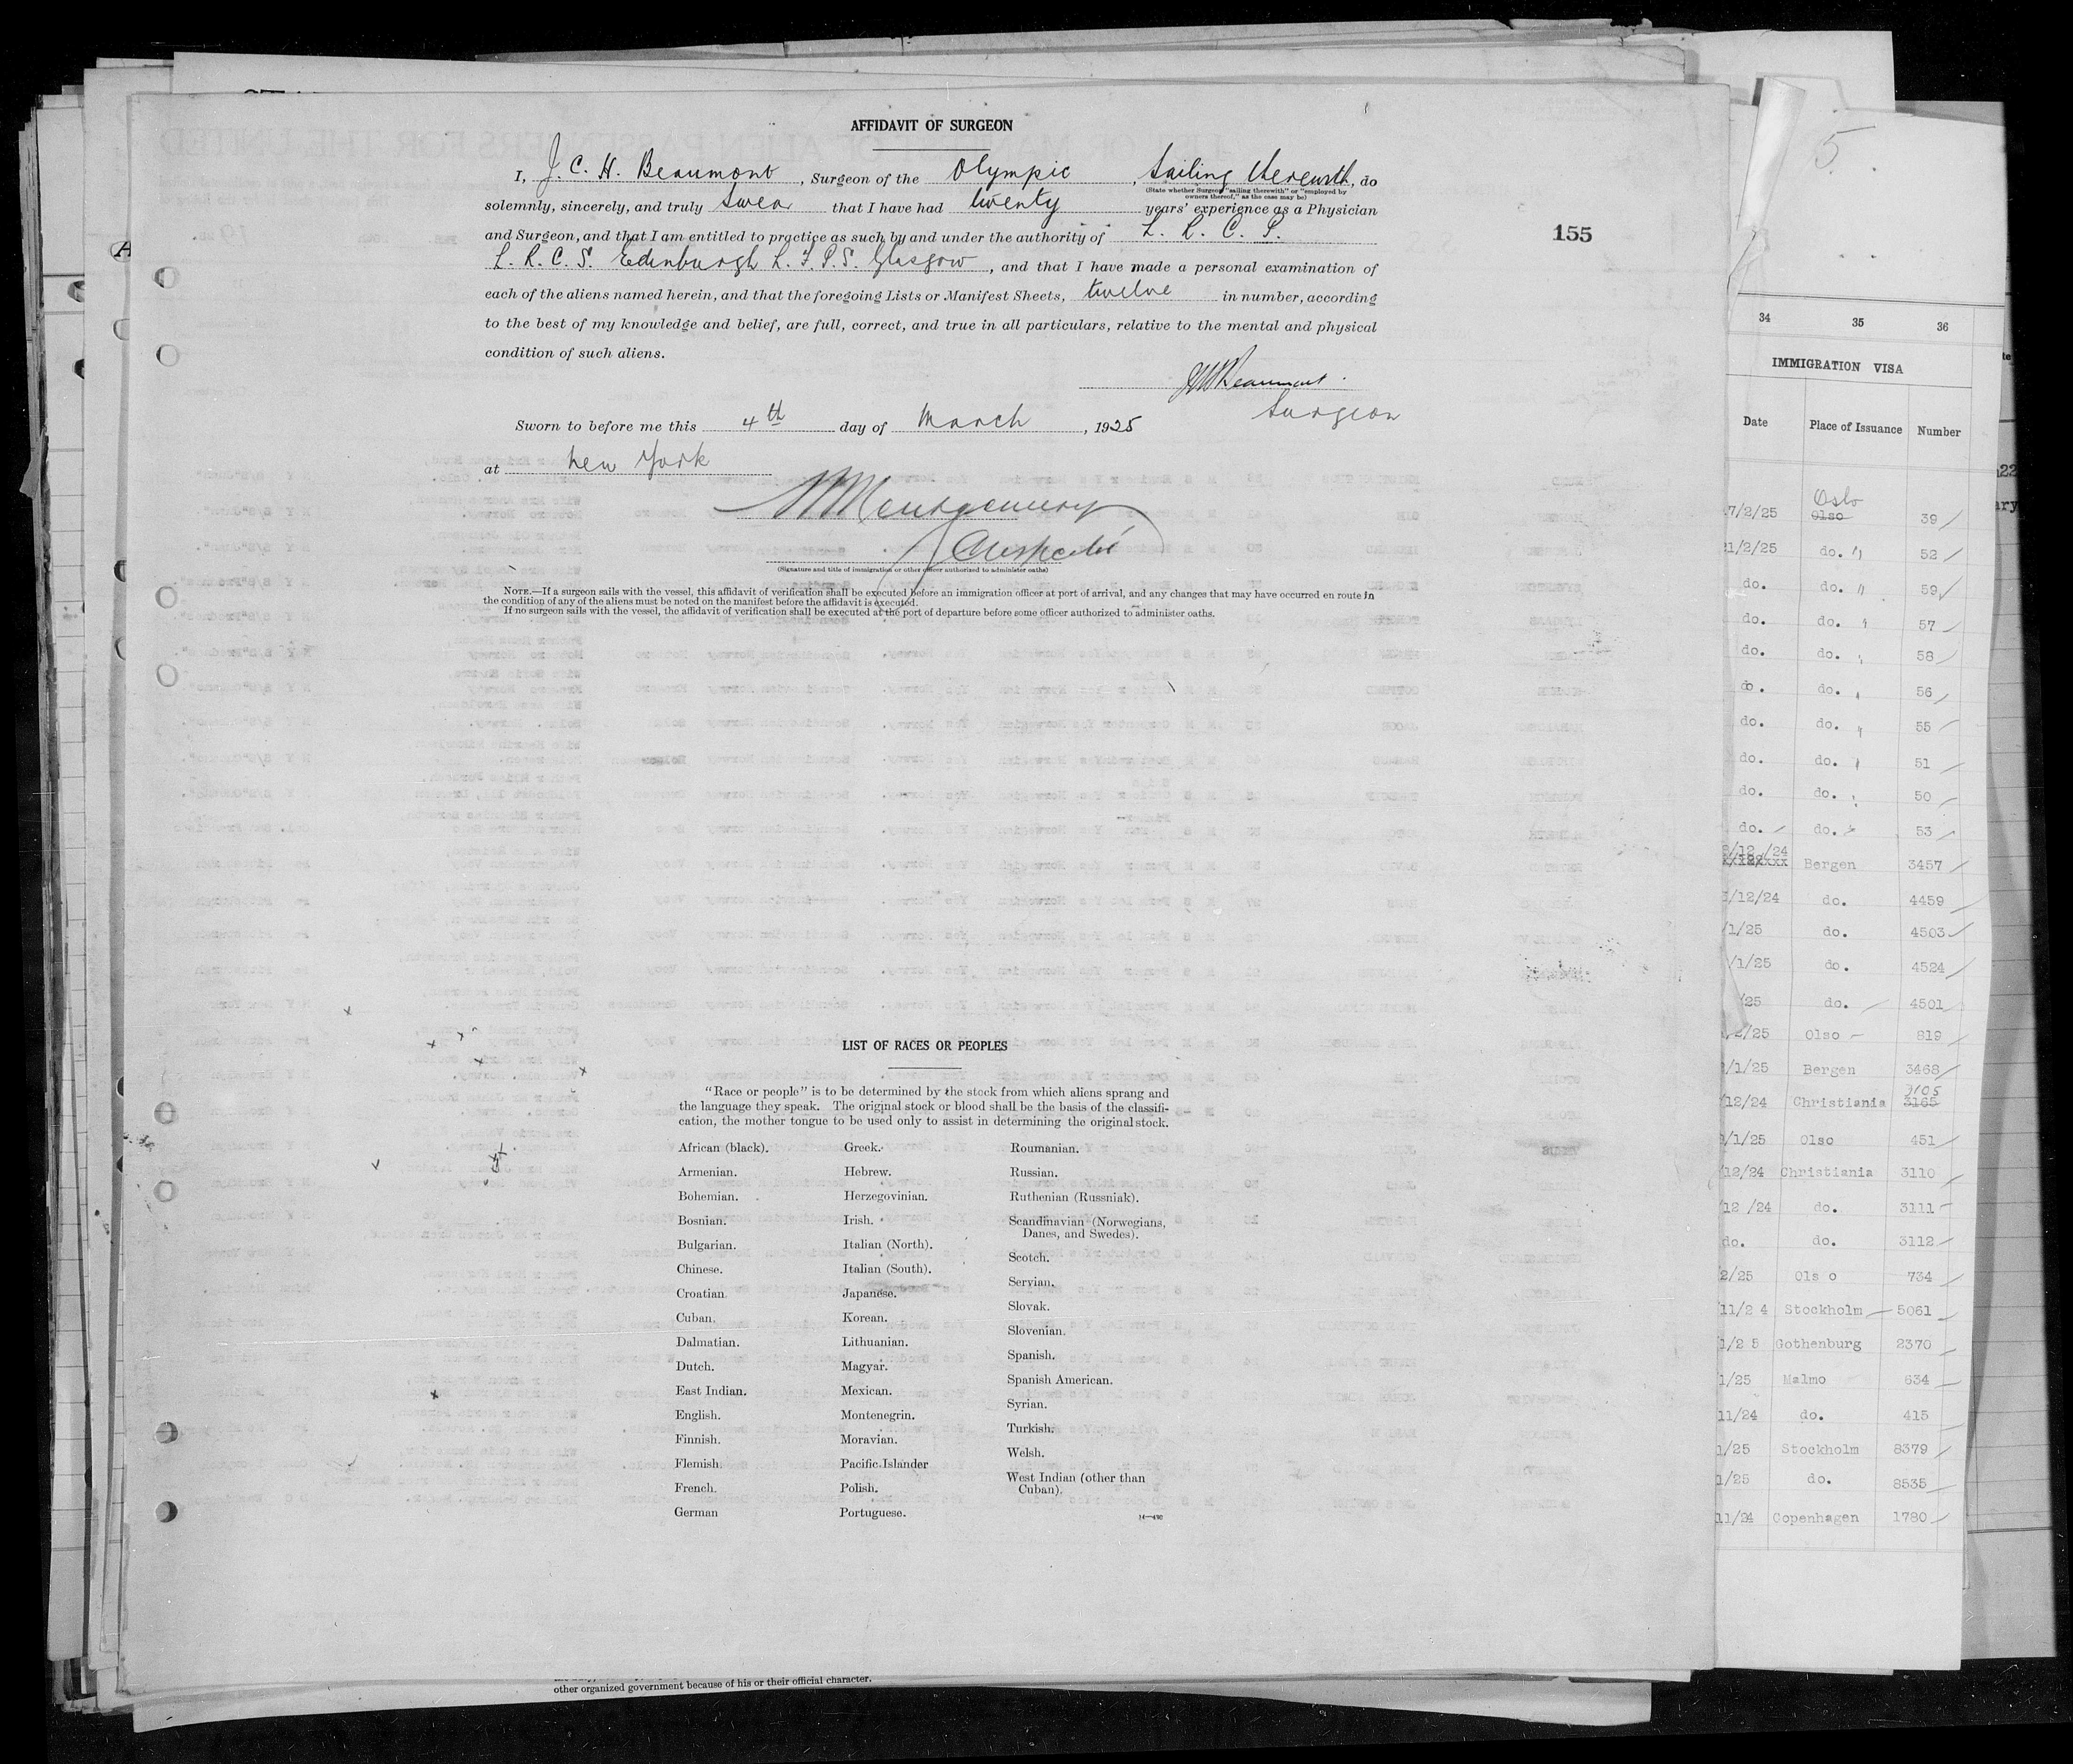 AFFIDAVIT OF SURGEON
I, J. C. H. Beaumont, Surgeon of the Olympic, Sailing therewith, do
(State whether Surgeon "sailing therewith" or "employed by
owners thereof," as the case may be)
solemnly, sincerely, and truly Swear that I have had twenty years' experience as a Physician
and Surgeon, and that I am entitled to practice as such by and under the authority of L. R. C. P.
155
L. R. C. S. Edinburgh L. F. P. S. Glasgow, and that I have made a personal examination of
each of the aliens named herein, and that the foregoing Lists or Manifest Sheets, twelve in number, according
to the best of my knowledge and belief, are full, correct, and true in all particulars, relative to the mental and physical
condition of such aliens.
Beaumont
Surgeon
Sworn to before me this 4th day of March, 1925
at New York
Montgomery
(Signature and title of immigration or other officer authorized to administer oaths)
NOTE.—If a surgeon sails with the vessel, this affidavit of verification shall be executed before an immigration officer at port of arrival, and any changes that may have occurred en route in
the condition of any of the aliens must be noted on the manifest before the affidavit is executed.
If no surgeon sails with the vessel, the affidavit of verification shall be executed at the port of departure before some officer authorized to administer oaths.
LIST OF RACES OR PEOPLES
"Race or people" is to be determined by the stock from which aliens sprang and
the language they speak. The original stock or blood shall be the basis of the classifi-
cation, the mother tongue to be used only to assist in determining the original stock.
African (black).
Armenian.
Bohemian.
Bosnian.
Bulgarian.
Chinese.
Croatian.
Cuban.
Dalmatian.
Dutch.
East Indian.
English.
Finnish.
Flemish.
French.
German
Greek.
Hebrew.
Herzegovinian.
Irish.
Italian (North).
Italian (South).
Japanese.
Korean.
Lithuanian.
Magyar.
Mexican.
Montenegrin.
Moravian.
Pacific Islander
Polish.
Portuguese.
Roumanian.
Russian.
Ruthenian (Russniak).
Scandinavian (Norwegians,
Danes, and Swedes).
Scotch.
Servian.
Slovak.
Slovenian.
Spanish.
Spanish American.
Syrian.
Turkish.
Welsh.
West Indian (other than
Cuban).
14—430
other organized government because of his or their official character.
5
34 35 36
IMMIGRATION VISA
Date Place of Issuance Number
Oslo
7/2/25 Olso 39
21/2/25 do. " 52
do. do. " 59
do. do. 57
do. do. 58
do. do. 56
do. do. 55
do. do. 51
do. do. 50
do. do. 53
/12/24 Bergen 3457
/12/24 do. 4459
/1/25 do. 4503
/1/25 do. 4524
/25 do. 4501
2/25 Olso 819
/1/25 Bergen 3468
3105
/12/24 Christiania 3165
/1/25 Olso 451
/12/24 Christiania 3110
/12 /24 do. 3111
do. do. 3112
2/25 Ols o 734
11/2 4 Stockholm 5061
1/2 5 Gothenburg 2370
1/25 Malmo 634
11/24 do. 415
1/25 Stockholm 8379
1/25 do. 8535
11/24 Copenhagen 1780